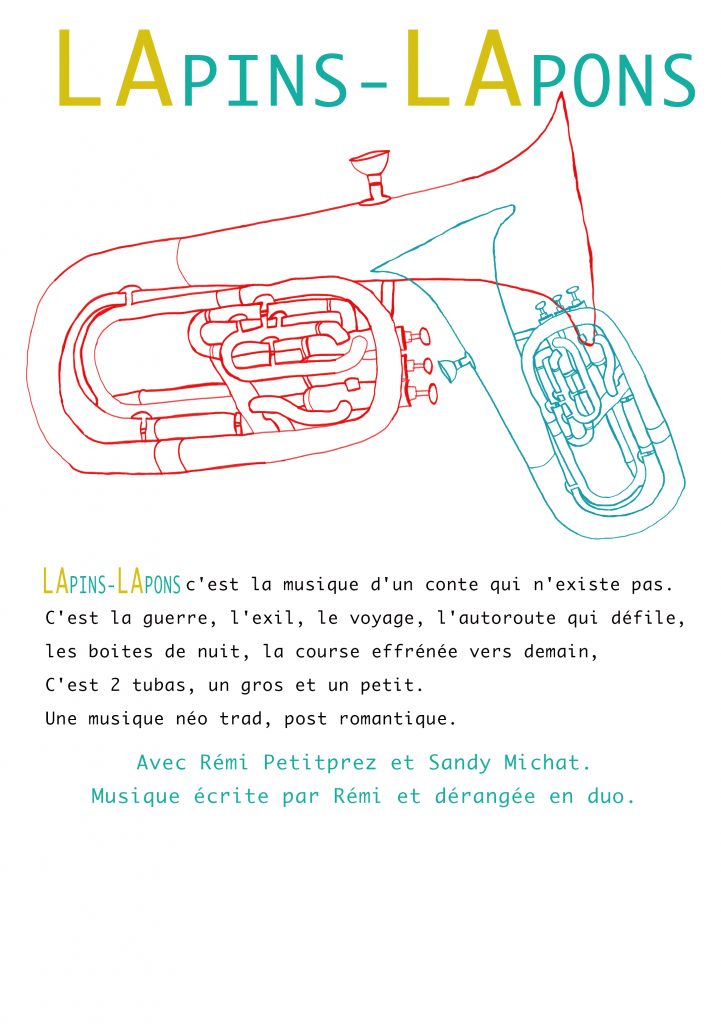 LAPINS-LAPONS
LAPINS-LAPONS c'est la musique d'un conte qui n'existe pas.
C'est la guerre, l'exil, le voyage, l'autoroute qui défile,
les boites de nuit, la course effrénée vers demain,
C'est 2 tubas, un gros et un petit.
Une musique néo trad, post romantique.
Avec Rémi Petitprez et Sandy Michat.
Musique écrite par Rémi et dérangée en duo.